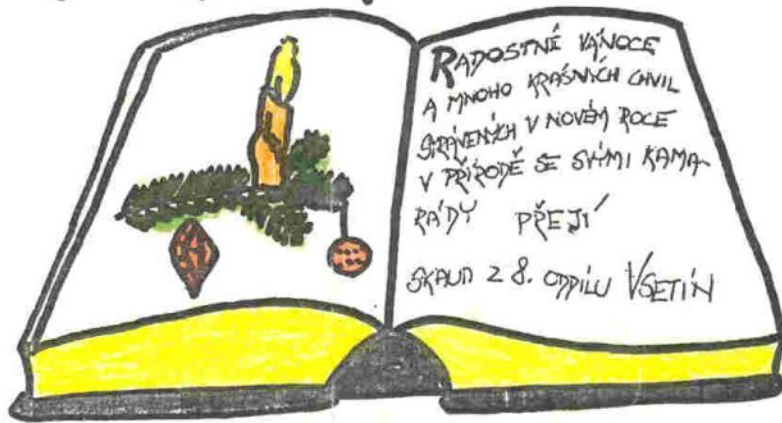 RADOSTNÉ VÁNOCE
A MNOHO KRÁSNÝCH CHVIL
STRÁVENÝCH V NOVÉM ROCE
V PŘÍRODĚ SE SVÝMI KAMA-
RÁDY PŘEJÍ
SKAUTI Z 8. ODDÍLU VSETÍN